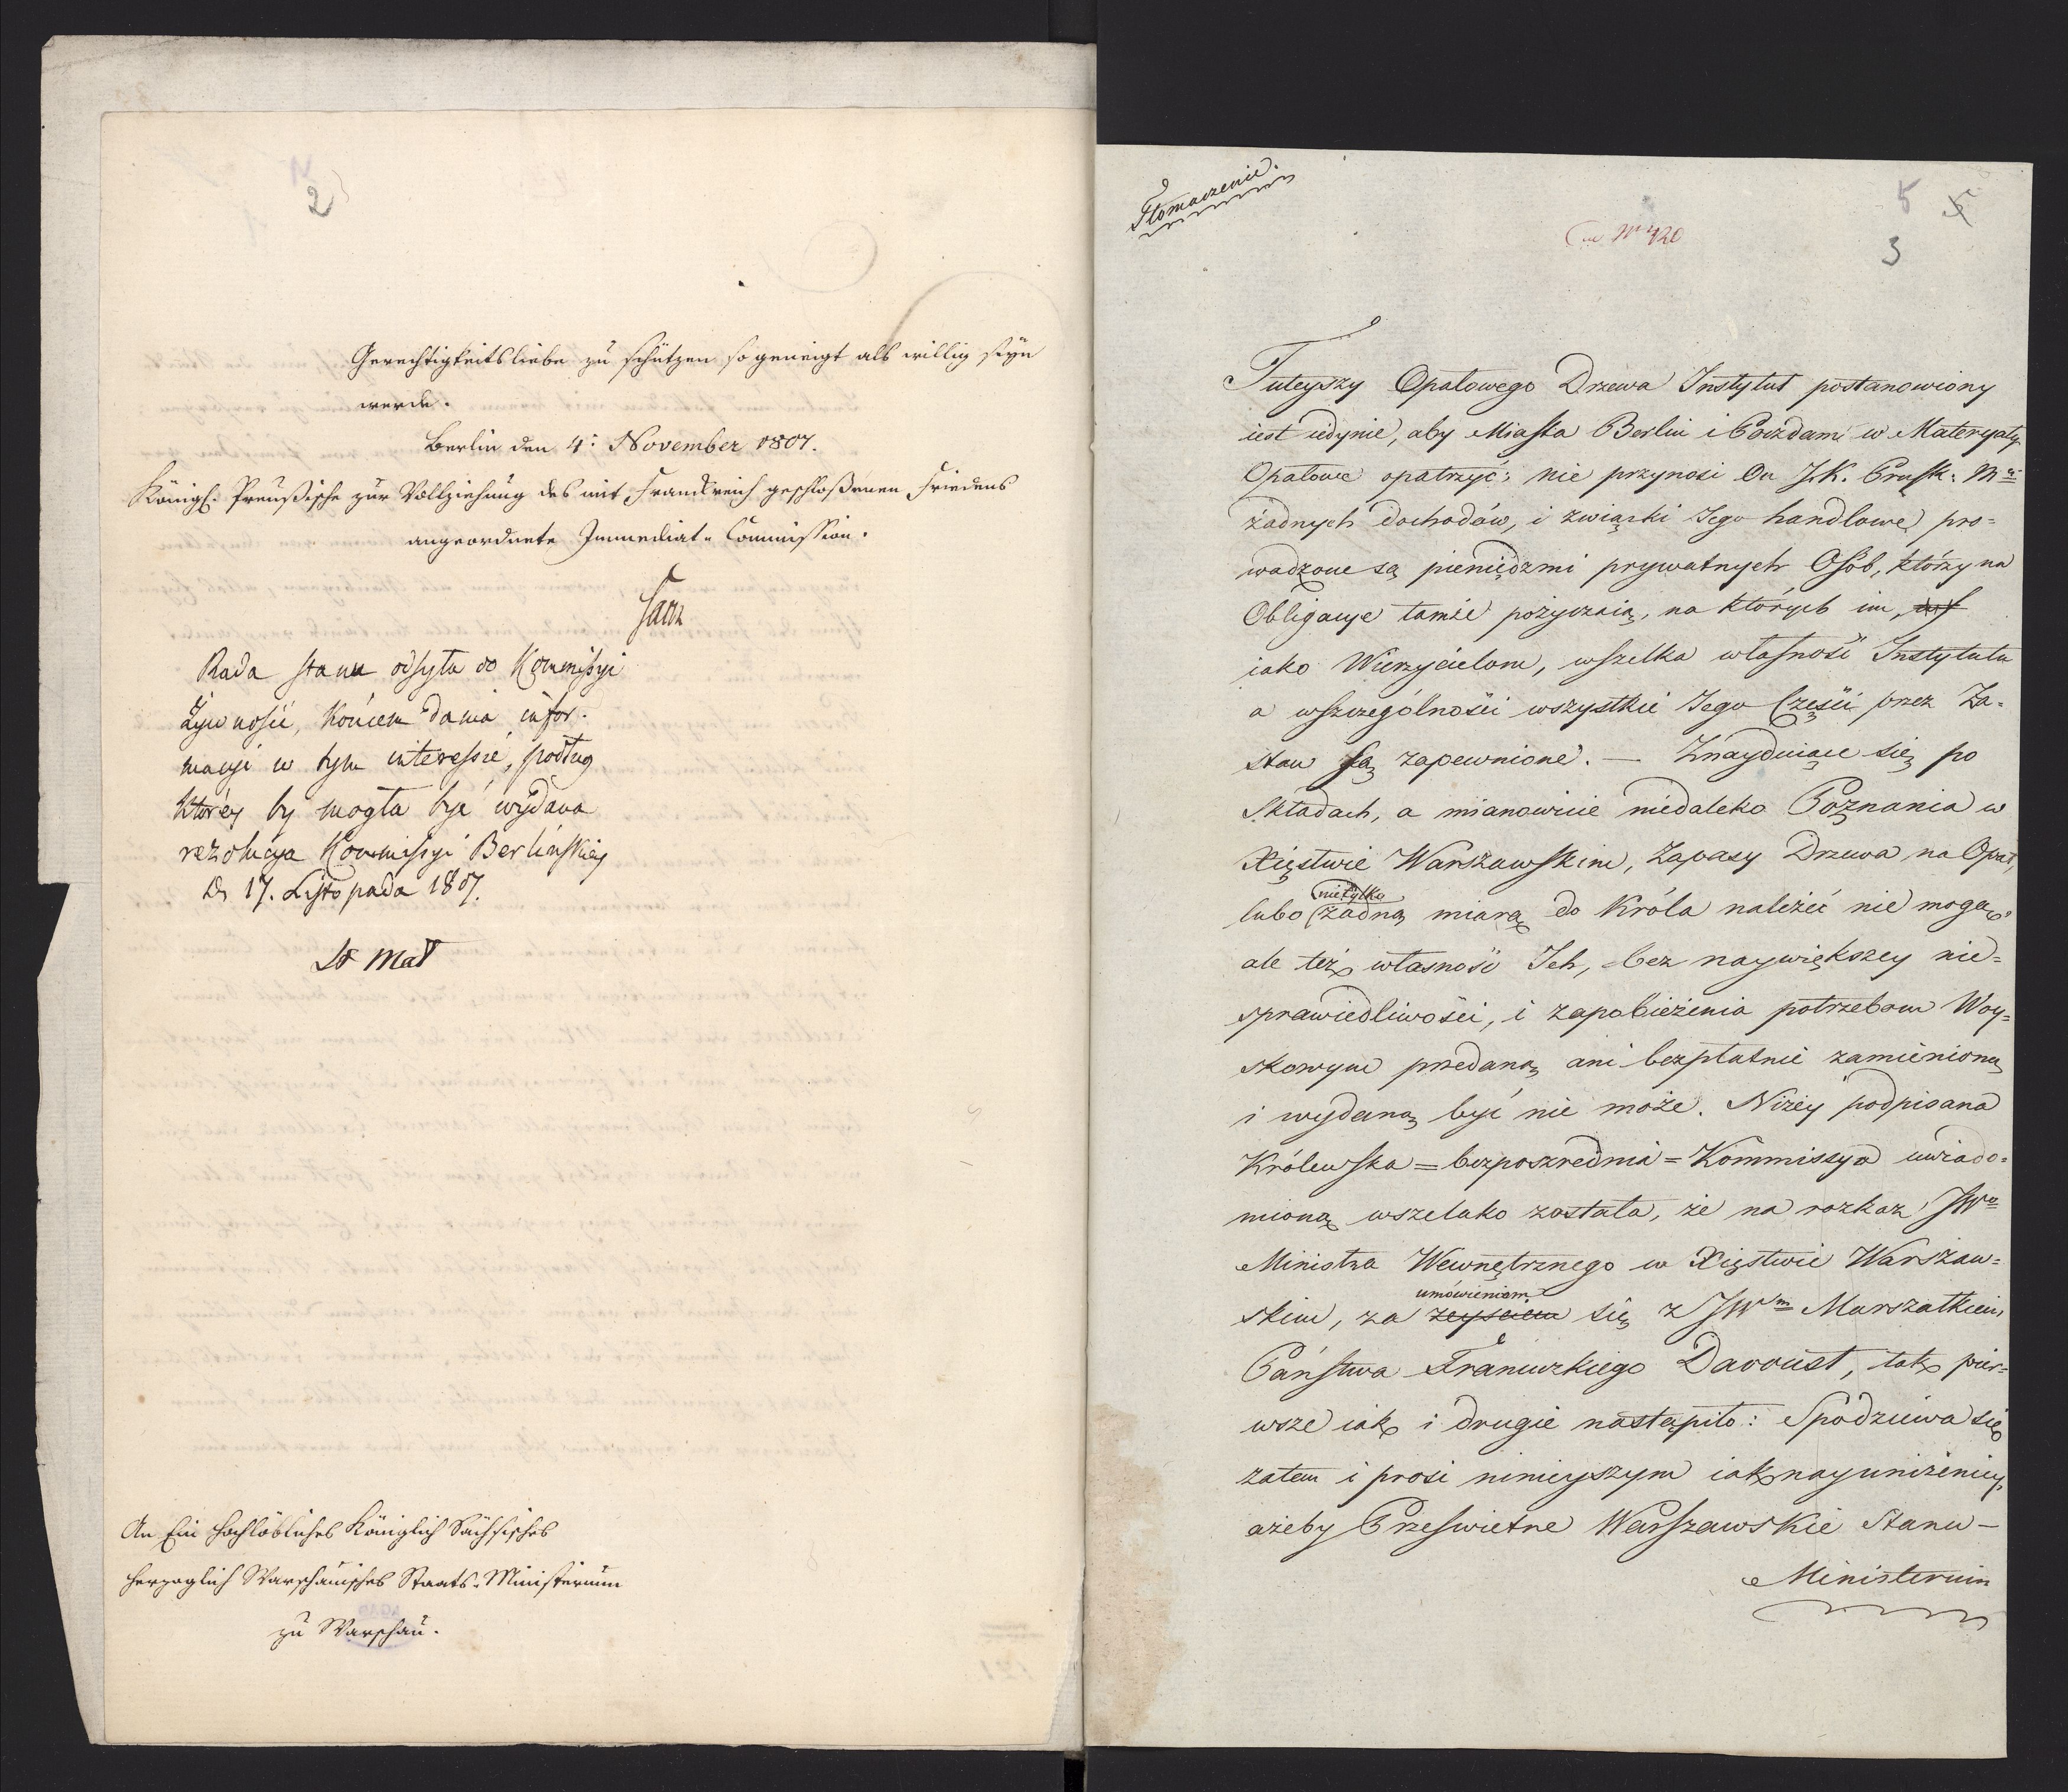 2
Gerechtigkeitsliebe zu schützen so geneigt als willig seyn
werde.
Berlin den 4: November 1807.
Königl. Preußische zur Vollziehung des mit Frankreich geschloßenen Friedens
angeordnete Immediat-Commission.
Sack
Rada stanu odsyła do Kommissyi
Żywnośći, końcem dania infor-
macyi w tym interessie, podług
któréy by mogła być wydana
rezolucya Kommissyi Berlińskiéy
D. 17. Listopada 1807.
St Mał
An Ein Hochlöbliches Königlich Sächsisches
Herzoglich Warschauisches Staats-Ministerium
zu Warschau.
Tłomaczenie.
ad Nr 420
5
3
Tuteyszy Opałowego Drzewa Instytut postanowiony
iest iedynie, aby Miasta Berlin i Poczdam w Materyały
Opałowe opatrzyć; nie przynosi On J.K. Prusk: Mci
żadnych dochodów, i związki Jego handlowe pro=
wadzone są pieniędzmi prywatnych Osób, którzy na
Obligacye tamże pożyczaią, na których im,
iako Wierzycielom, wszelka własność Instytutu
a wszczególności wszystkie Jego Części przez Za-
staw są zapewnione. — Znayduiące się po
Składach, a mianowicie niedaleko Poznania w
Xięstwie Warszawskim, Zapasy Drzewa na Opał,
lubo nietylko żadną miarą do Króla należeć nie mogą,
ale też własność Ich, bez naywiększey nie=
sprawiedliwości, i zapobieżenia potrzebom Woy=
skowym przedaną ani bezpłatnie zamienioną
i wydaną być nie może. Niżéy podpisana
Królewska = bezpośrednia = Kommissya uwiado=
mioną wszelako została, że na rozkaz JWo
Ministra Wewnętrznego w Xięstwie Warszaw=
skim, za zeysciem umówieniem się z JWm Marszałkiem
Państwa Francuzkiego Davoust, tak pier=
wsze iak i drugie nastąpiło: Spodziewa się
zatem i prosi ninieyszym iak nayuniżeniey,
ażeby Prześwietne Warszawskie Stanu —
Ministerium